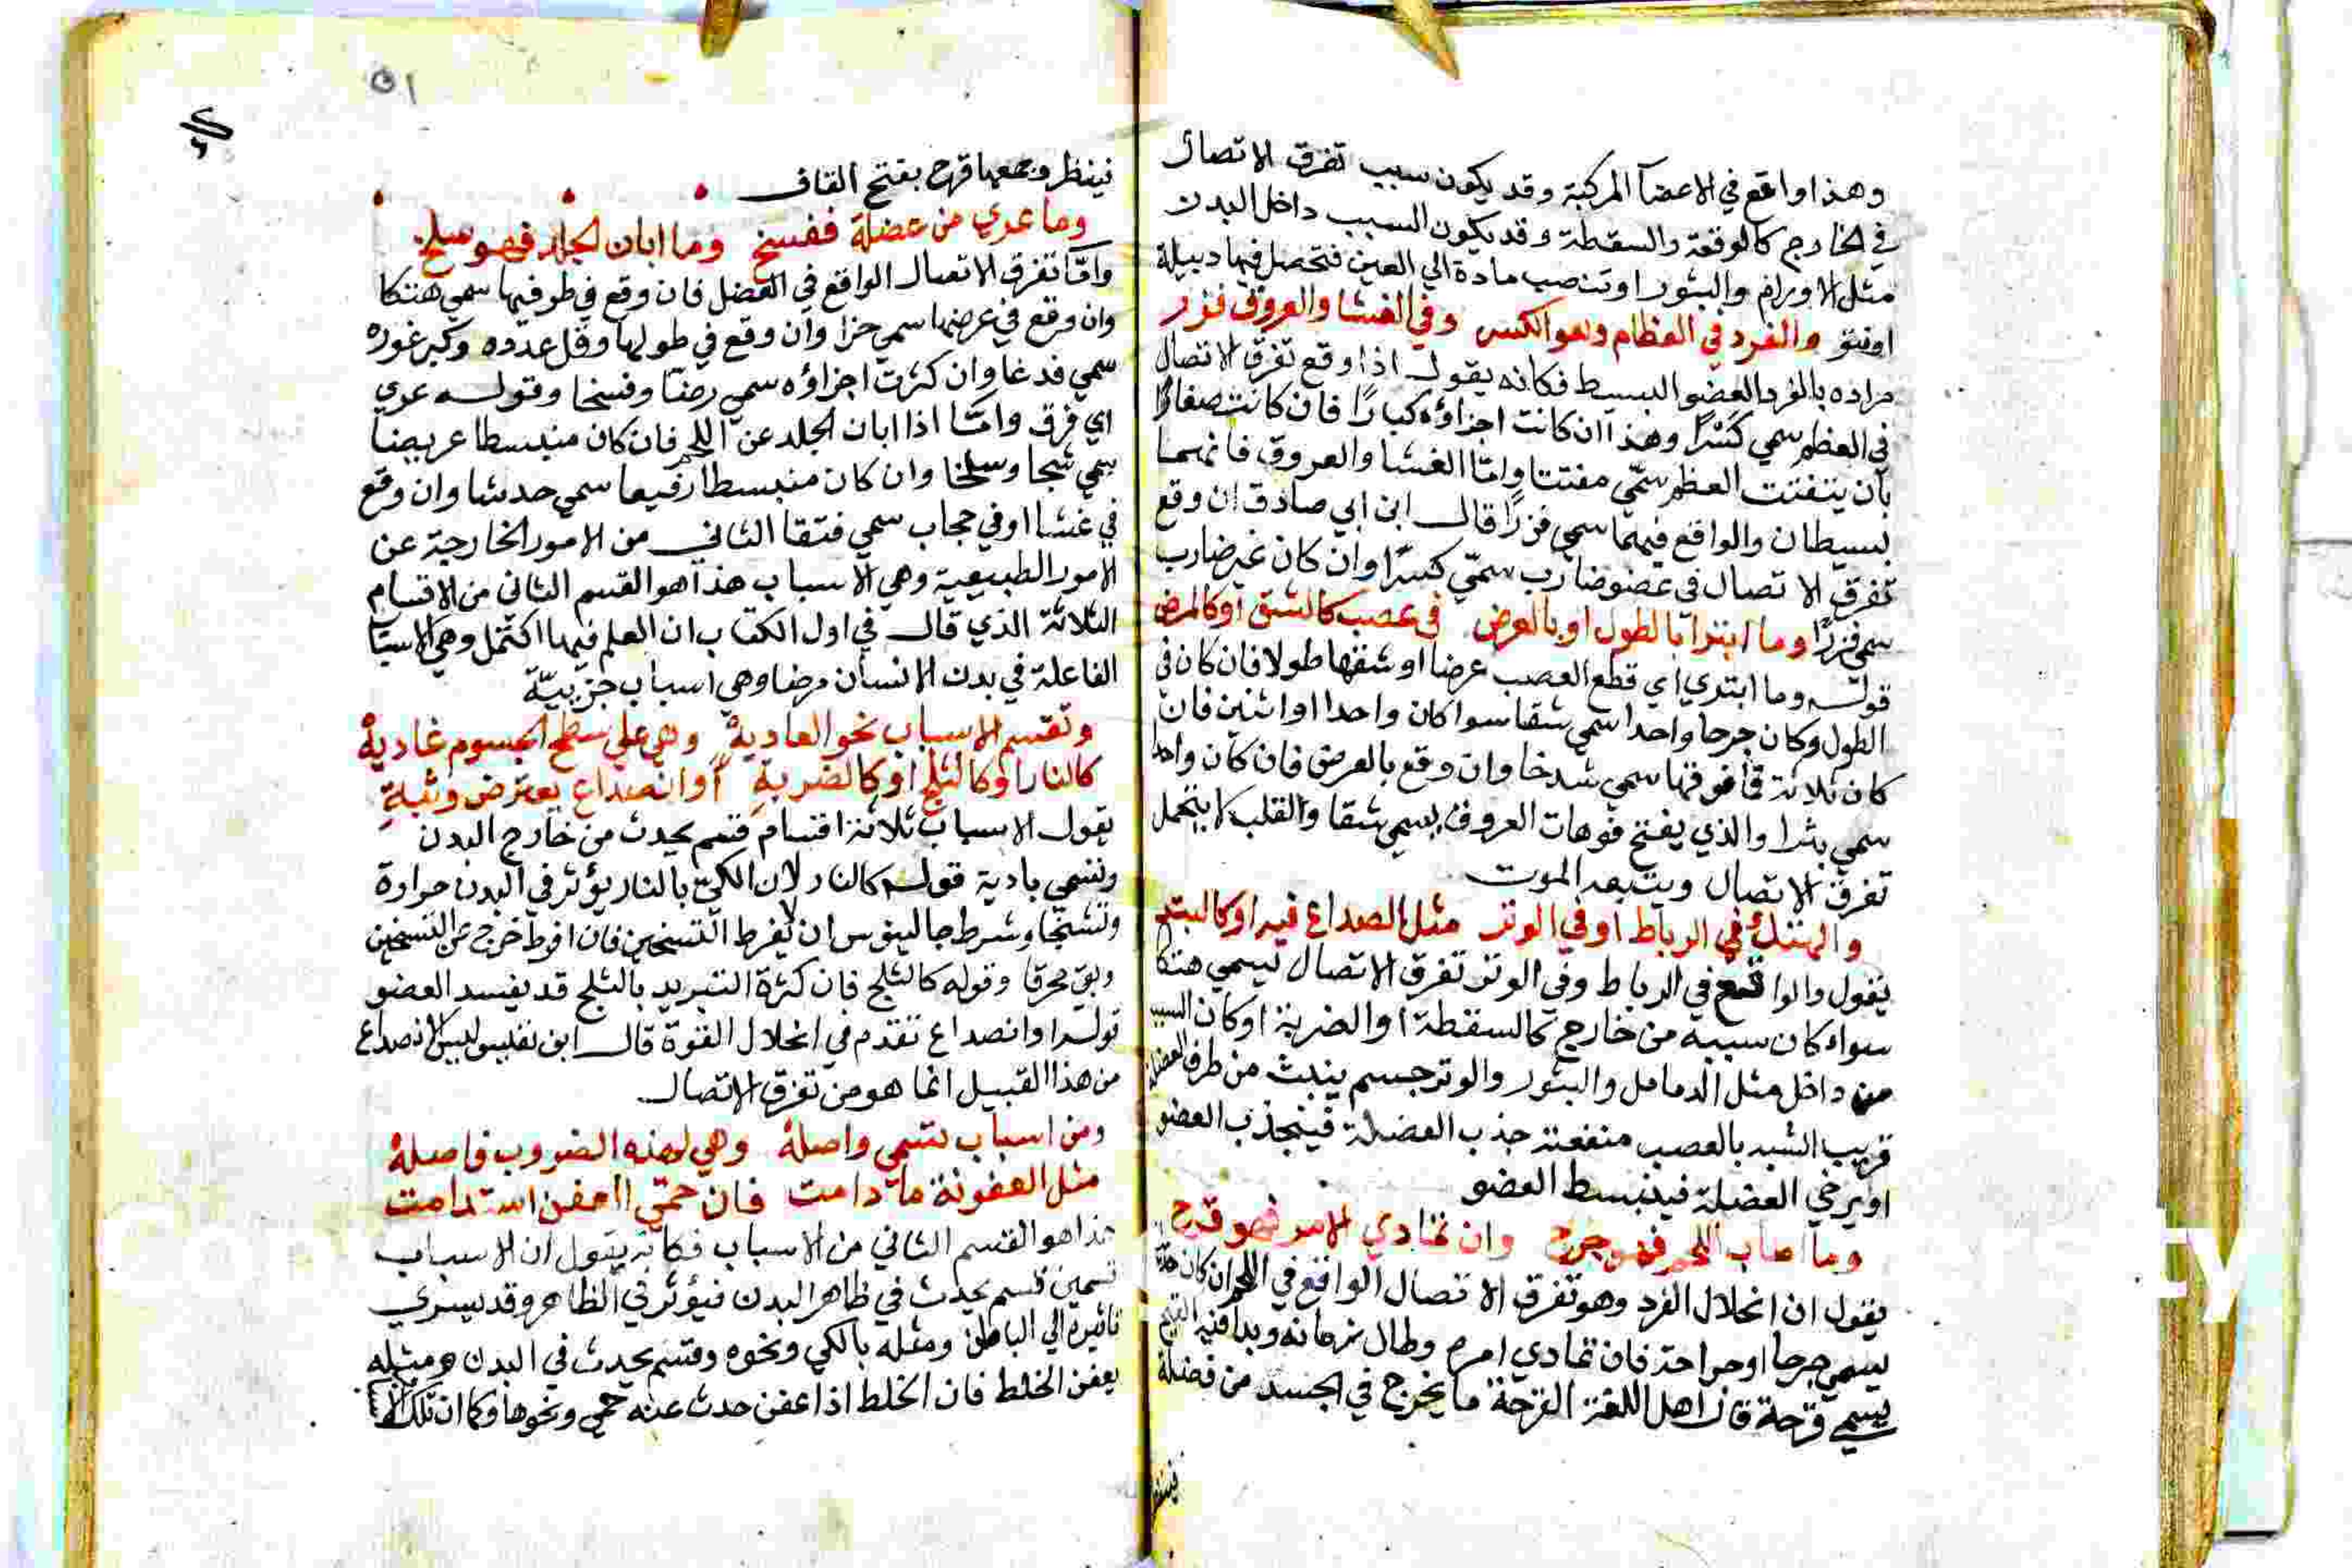 وهذا واقع في الاعضآ المركبة وقد يكون سبب تفرق الاتصال
في الخارج كالوقعة والسقطة وقد يكون السبب داخل البدن
مثل الاورام والبثور او تنصب مادة الي العين فتحصل فيها دبيلة
او فتق والفرد في العظام وهو الكسر وفي الغشا والعروق فزر
مراده بالفرد العضو البسيط فكانه يقول اذا وقع تفرق الاتصال
في العظم سمي كَسْرًا وهذا ان كانت اجزاؤه كبارًا فان كانت صغارًا
بان يتفتت العظم سمّي مفتتا وامّا الغشا والعروق فانهما
بسيطان والواقع فيهما سمي فزرًا قال ابن ابي صادق ان وقع
تفرق الاتصال في عضو ضارب سمّي كسرًا وان كان غير ضارب
سمي فزرًا وما ابترا بالطول او بالعرض في عصب كالشق او كالرض
قوله وما ابتري اي قطع العصب عرضا او شقها طولا فان كان في
الطول وكان جرحا واحدا سمي شقا سوا كان واحدا او اثنين فان
كان ثلاثة فما فوقها سمي شدخا وان وقع بالعرض فان كان واحدا
سمي بثرا والذي يفتح فوهات العروق يسمي شقا والقلب لا يتحمل
تفرق الاتصال ويتبعه الموت
والهتك في الرباط او في الوتر مثل الصداع فيه او كالبتر
يقول والواقع في الرباط وفي الوتر تفرق الاتصال يسمي هتكا
سواء كان سببه من خارج كالسقطة او الضربة او كان السبب
من داخل مثل الدمامل والبثور والوتر جسم ينبث من طرف العضلة
قريب الشبه بالعصب منفعته جذب العضلة فينجذب العضو
او يرخي العضلة فينبسط العضو
وما اصاب اللحم فهو جرح وان تمادي الامر فهو قرح
يقول ان انحلال الفرد وهو تفرق الاتصال الواقع في اللحم ان كان
يسمي جرحا او جراحة فان تمادي امره وطال زمانه وبدا فيه القيح
يسمي قرحة قال اهل اللغة القرحة ما يخرج في الجسد من فضلة
٥١
فينظر وجمعها قرح بفتح القاف
وما عري من عضلة ففسخ وما ابان الجلد فهو سلخ
وامّا تفرق الاتصال الواقع في العضل فان وقع في طرفيها سمي هتكا
وان وقع في عرضها سمي حزا وان وقع في طولها وقل عدده وكبر غوره
سمي فدغا وان كثرت اجزاؤه سمي رضّا وفسخا وقوله عري
اي فرق وامّا اذا ابان الجلد عن اللحم فان كان منبسطا عريضا
سمي شجا وسلخا وان كان منبسطا رفيعا سمي خدشا وان وقع
في غشا او في حجاب سمي فتقا الثاني من الامور الخارجة عن
الامور الطبيعية وهي الاسباب هذا هو القسم الثاني من الاقسام
الثلاثة الذي قال في اول الكتاب ان العلم فيها اكتمل وهي الاسباب
الفاعلة في بدن الانسان مرضا وهي اسباب جزييّة
وتقسم الاسباب نحو العادية وهي علي سطح الجسوم غادية
كالنار او كالثلج او كالضربة او انصداع يعترض وثبة
يقول الاسباب ثلاثة اقسام قسم يحدث من خارج البدن
وتسمي بادية قوله كالنار لان الكيّ بالنار يؤثر في البدن حرارة
وتشنجا وشرط جالينوس ان لا يفرط التسخين فان افرط خرج عن التسخين
وبقي محرقا وقوله كالثلج فان كثرة التبريد بالثلج قد يفسد العضو
قوله او انصداع تقدم في انحلال القوة قال ابن نفيس وليس الانصداع
من هذا القبيل انما هو من تفرق الاتصال
ومن اسباب تسمي واصلة وهي لهذه الضروب فاصلة
مثل العفونة ما دامت فان حمّي العفن استدامت
هذا هو القسم الثاني من الاسباب فكانه يقول ان الاسباب
قسمين قسم يحدث في ظاهر البدن فيؤثر في الظاهر وقد يسري
تاثيره الي الباطن ومثله بالكي ونحوه وقسم يحدث في البدن ومثله
بعفن الخلط فان الخلط اذا عفن حدث عنه حمي ونحوها وكما ان تلك